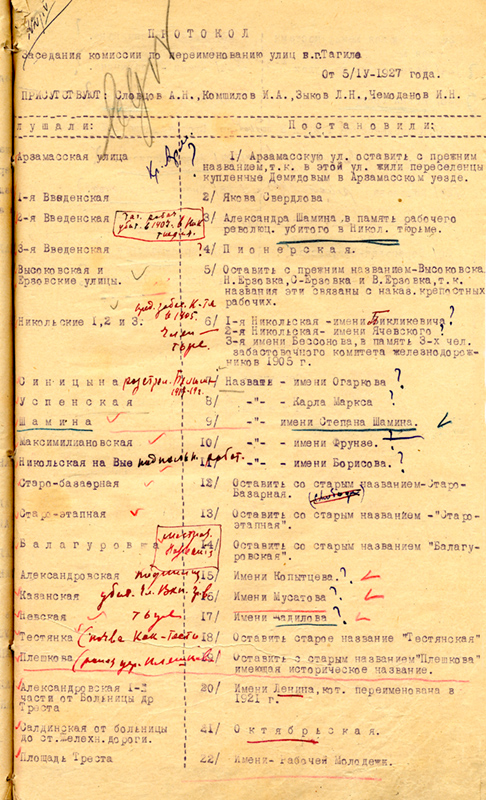 ПРОТОКОЛ
Заседания комиссии по переименованию улиц в г.Тагиле
От 5/IУ-1927 года.
ПРИСУТСТВУЮТ: Словцов А.Н., Комшилов И.А., Зыков Л.Н., Чемоданов И.Н.
лушали: Постановили:
Арзамасская улица ? 1/ Арзамасскую ул. оставить с прежним
названием, т.к. в этой ул. жили переселенцы
купленные Демидовым в Арзамасском уезде.
1-я Введенская 2/ Якова Свердлова.
2-я Введенская 3/ Александра Шамина, в память рабочего
революц. убитого в Никол. тюрьме.
3-я Введенская ? 4/ Пионерская.
Высоковская и 5/ Оставить с прежним названием-Высоковска
Ерзовские улицы. Н.Ерзовка, С-Ерзовка и В.Ерзовка, т.к.
названия эти связаны с наказ. крепостных
рабочих.
Никольские 1, 2 и 3. 6/ 1-я Никольская -имени Бикликевича ?
2-я Никольская- имени Ячевского ?
3-я имени Бессонова, в память 3-х чел.
забастовочного комитета железнодорож-
ников 1905 г.
Синицына Назвать - имени Огаркова ?
Успенская 8/ -"- - Карла Маркса ?
Шамина 9/ -"- имени Степана Шамина.
Максимилиановская 10/ -"- - имени Фрунзе. ?
Никольская на Вые подпольн. работ. 11/ -"- - имени Борисова. ?
Старо-базарная 12/ Оставить со старым названием-Старо-
Базарная.
Старо-этапная 13/ Оставить со старым названием -"Старо-
этапная".
Балагуровка 14/ Оставить со старым названием "Балагу-
ровская".
Александровская 15/ Имени Копытцева. ?
Казанская 16/ Имени Мусатова ?
Невская 17/ Имени Вадилова ?
Тестянка 18/ Оставить старое название "Тестянская"
Плешкова 19/ Оставить с старым названием "Плешкова"
имеющая историческое название.
Александровская 1-й 20/ Имени Ленина, кот. переименована в
части от Больницы др 1921 г.
Треста
Салдинская от больницы 21/ Октябрьская.
до ст.железн.дороги.
Площадь Треста 22/ Имени- Рабочей Молодежи.